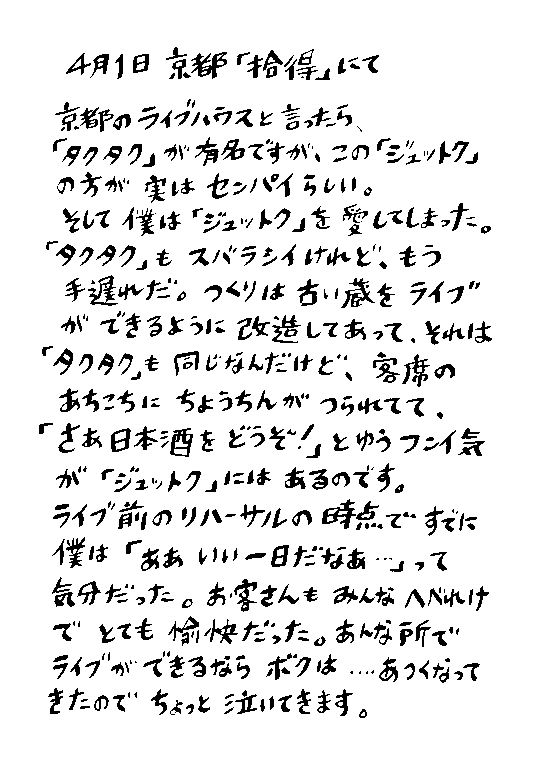 4月1日 京都「拾得」にて
京都のライブハウスと言ったら、
「タクタク」が有名ですが、この「ジュットク」
の方が実はセンパイらしい。
そして僕は「ジュットク」を愛してしまった。
「タクタク」もスバラシイけれど、もう
手遅れだ。つくりは古い蔵をライブ
ができるように改造してあって、それは
「タクタク」も同じなんだけど、客席の
あちこちにちょうちんがつられてて、
「さあ日本酒をどうぞ!」とゆうフンイ気
が「ジュットク」にはあるのです。
ライブ前のリハーサルの時点ですでに
僕は「ああいい一日だなあ…」って
気分だった。お客さんもみんなへべれけ
でとても愉快だった。あんな所で
ライブができるならボクは…あつくなって
きたのでちょっと泣いてきます。